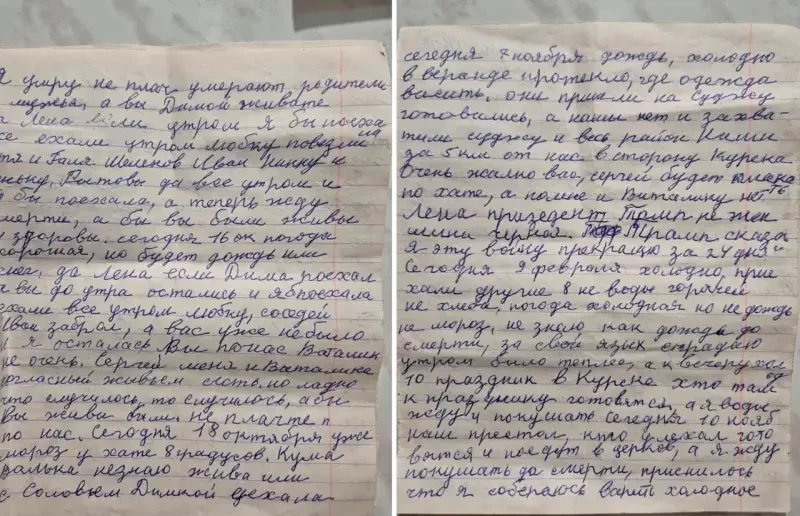 Я умру не плач умерают родители
мужья, а вы Димой живите
а Лена если утром я бы поеха
все ехали утром Любку повезли
тя и Галя Шеленов Иван Нинку и
ньку, Ростовы да все утром и
я бы поехала, а теперь жду
мерти, а бы вы были живы
и здоровы. сегодня 16 ок погода
хорошая, но будет дождь или
снег, да Лена если Дима поехал
а вы до утра остались и я б поехала
ехали все утром Любку, соседей
Иван забрал, а вас уже не было
и я осталась Вы по нас Ваталик
не очень. Сергей меня и Ваталика
огласный живьем сьесть, но ладно
что случилось, то случилось, абы
Вы живы были. не плачте п
по нас. Сегодня 18 октября уже
мороз у хате 8 градусов. Кума
Валька незнаю жива или
с Соловьем Димкой уехала
сегодня 7 ноября дождь, холодно
в веранде протекло, где одежда
висить. они пришли на Суджу
готовились, а наши нет и захва-
тили суджу и весь район Наши
за 5 км от нас в сторону Курска
Очень жалко вас, сергей будет плака
ть
по хате, а по мне и Виталику нет
Лена призедент Трамп не жен
щина черная. Трамп сказа
я эту войну прекращю за 24 дня
Сегодня 9 февроля холодно, прие
хали другие 8 не воды горячей
не хлеба, погода холодная но не дождь
не мороз, не знаю как дожить до
смерти, за свой язык страдаю
утром было теплее, а к вечеру хол
од
10 праздник в Курске хто там
к празднику готовятся, а я воды
жду и покушать Сегодня 10 нояб
наш престол, кто уехал гото
вятся и поедут в церков, а я жду
покушать да смерти, приснилось
что я собераюсь варить холодное